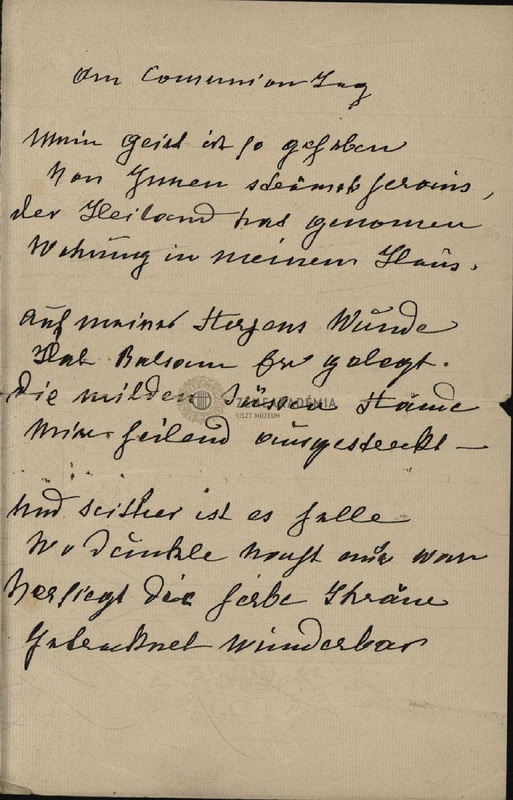 Am Comunion Tag
Mein Geist ist so gehoben
Von Innen strömt heraus,
der Heiland hat genomen
Wohnung in meinem Haus.
Auf meines Herzens Wunde
Hat Balsam Er gelegt.
Die milden Hände
ZENEAKADÉMIA
LISZT MÚZEUM
heilend ausgestreckt —
Und seither ist es helle
Wo dunkle Nacht nur war
Versiegt die herbe Thräne
Getrocknet wunderbar